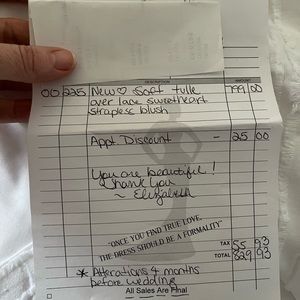 DESCRIPTION AMOUNT
00 225 New ♡ Soft tulle 799 00
over lace sweetheart
strapless blush
Appt. Discount - 25 00
You are beautiful!
Thank You
~ Elizabeth
"ONCE YOU FIND TRUE LOVE,
THE DRESS SHOULD BE A FORMALITY"
TAX 55 93
TOTAL 829 93
* Alterations 4 months
before wedding
All Sales Are Final